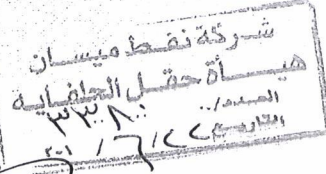 شركة نفط ميسان
هيـأة حقل الحلفايه
العدد/..
٣٣٨٠
التاريخ ٢٢/٦/٢٠١